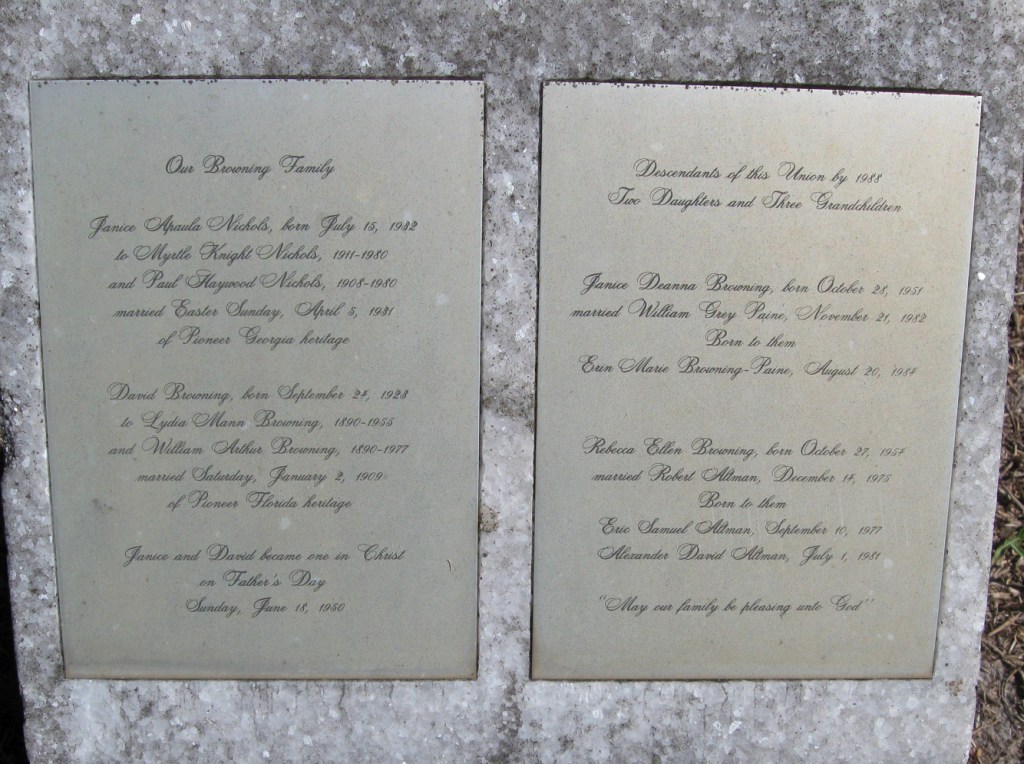 Our Browning Family
Janice Apaula Nichols, born July 15, 1932
to Myrtle Knight Nichols, 1911-1980
and Paul Haywood Nichols, 1908-1980
married Easter Sunday, April 5, 1931
of Pioneer Georgia heritage
David Browning, born September 24, 1928
to Lydia Mann Browning, 1890-1955
and William Arthur Browning, 1890-1977
married Saturday, January 2, 1909
of Pioneer Florida heritage
Janice and David became one in Christ
on Father's Day
Sunday, June 18, 1950
Descendants of this Union by 1988
Two Daughters and Three Grandchildren
Janice Deanna Browning, born October 28, 1951
married William Grey Paine, November 21, 1982
Born to them
Erin Marie Browning-Paine, August 20, 1984
Rebecca Ellen Browning, born October 27, 1954
married Robert Altman, December 14, 1975
Born to them
Eric Samuel Altman, September 10, 1977
Alexander David Altman, July 1, 1981
"May our family be pleasing unto God"